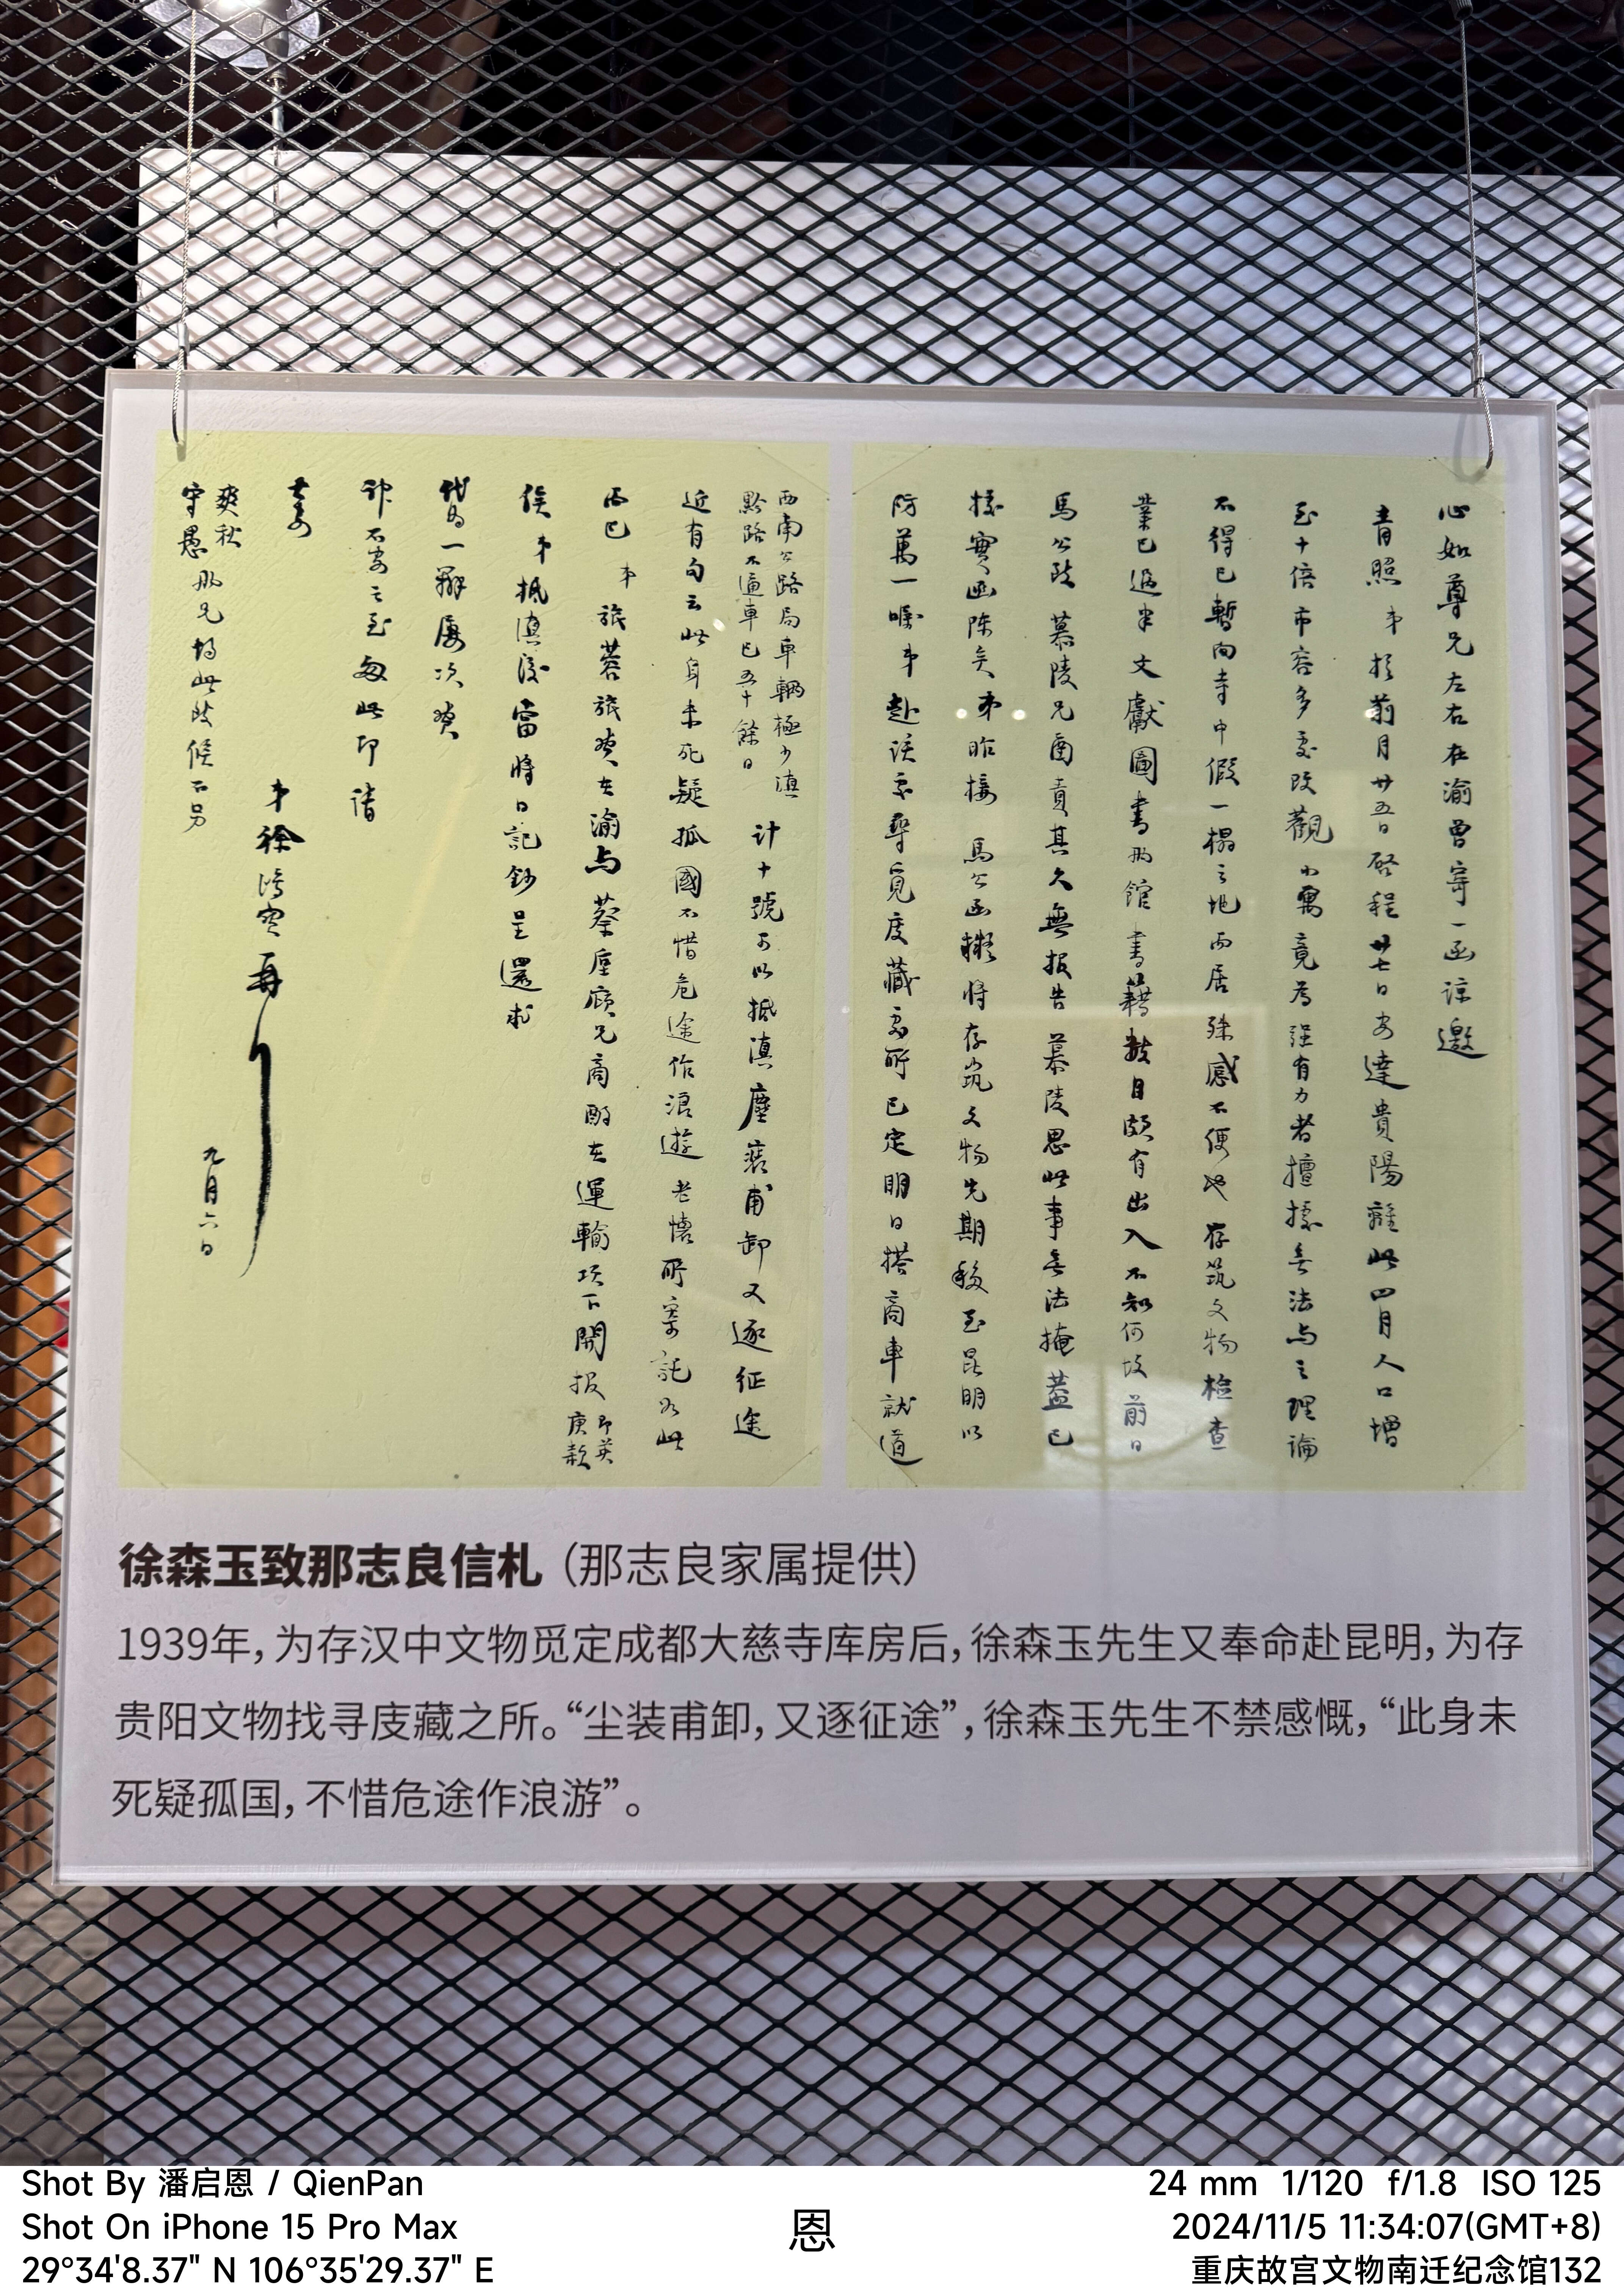 心如尊兄左右在渝曾寄一函谅邀
青照弟於前月廿五日啓程廿七日安達貴陽離此四月人口增
至十倍市容多变改觀小寓竟为强有力者擅據無法与之理論
不得已暫向寺中假一榻之地而居殊感不便也存筑文物检查
業已過半文獻圖書两館書籍數目頗有出入不知何故前日
馬公致慕陵兄函責其久無报告慕陵思此事無法掩蓋已
據實函陈矣弟昨接馬公函擬將存筑文物先期移至昆明以
防萬一囑弟赴滇尋覓庋藏處所已定明日搭商車就道
西南公路局車輛極少滇
黔路不通車已五十餘日
计十號可以抵滇塵裝甫卸又逐征途
近有句云此身未死疑孤國不惜危途作浪遊老懷所寄託如此
而已弟旅蓉旅费在渝与蔡
兄商酌在運輸项下開报
即英
庚款
俟弟抵滇後當將日記鈔呈還求
代为一辦屡次
神不安之至匆此即請
弟徐鴻寶再
九月六日
爽秋
守愚两兄均此致候不另
徐森玉致那志良信札（那志良家属提供）
1939年，为存汉中文物觅定成都大慈寺库房后，徐森玉先生又奉命赴昆明，为存
贵阳文物找寻庋藏之所。“尘装甫卸，又逐征途”，徐森玉先生不禁感慨，“此身未
死疑孤国，不惜危途作浪游”。
Shot By 潘启恩 / QienPan
Shot On iPhone 15 Pro Max
29°34'8.37" N 106°35'29.37" E
恩
24 mm 1/120 f/1.8 ISO 125
2024/11/5 11:34:07(GMT+8)
重庆故宫文物南迁纪念馆132